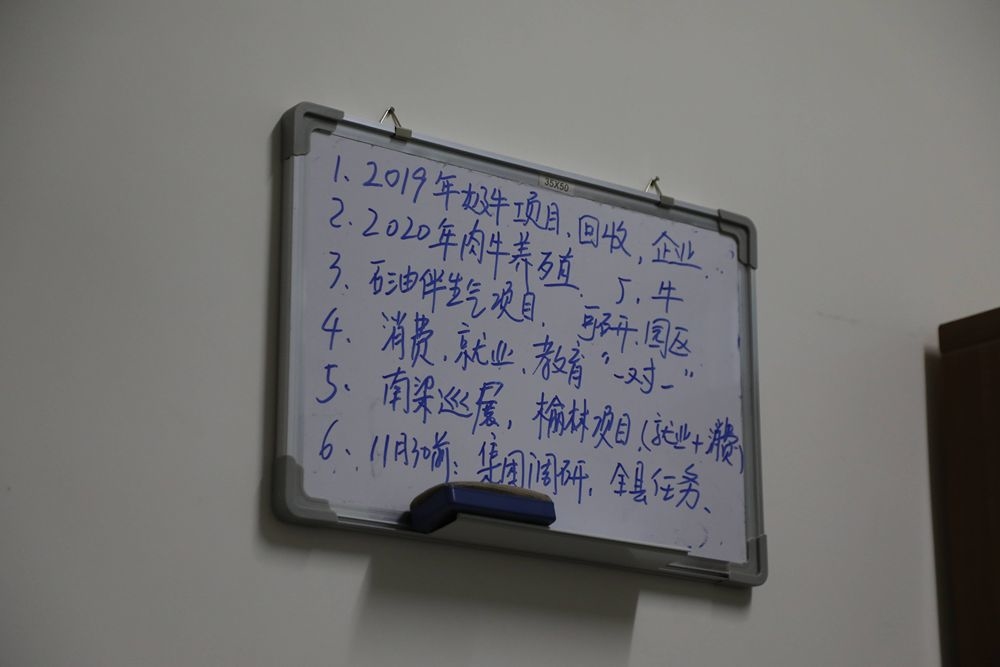 35X50
1、2019年极牛项目、回收，企业
2、2020年肉牛养殖、厂、牛
3、石油伴生气项目、可研、园区
4、消费、就业、教育“一对一”
5、南梁巡展，榆林项目、(就业+消费)
6、11月30前：集团调研，全县任务、